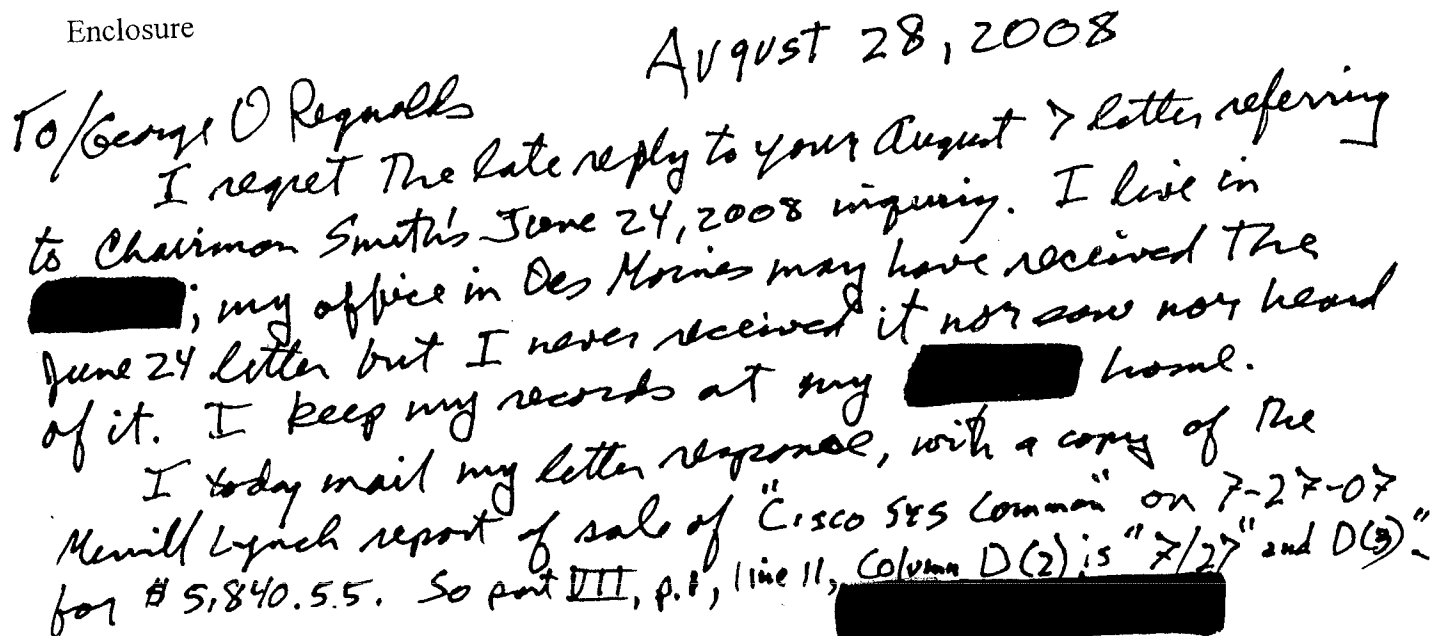 Enclosure
August 28, 2008
To/George O Reynolds
I regret The late reply to your August 7 letter referring
to Chairman Smith's June 24, 2008 inquiry. I live in
; my office in Des Moines may have received the
June 24 letter but I never received it nor saw nor heard
of it. I keep my records at my home.
I today mail my letter response, with a copy of the
Merrill Lynch report of sale of "Cisco Sys Common" on 7-27-07
for $5,840.55. So part VII, p.1, line 11, Column D(2) is "7/27" and D(3)"